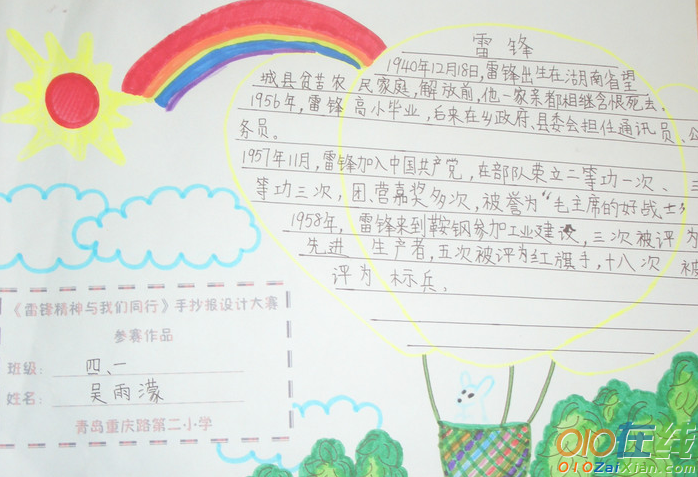 雷锋
1940年12月18日,雷锋出生在湖南省望
城县贫苦农民家庭,解放前,他一家亲都相继含恨死去、
1956年,雷锋高小毕业,后来在乡政府、县委会担任通讯员、公
务员。
1957年11月,雷锋加入中国共产党,在部队荣立二等功一次、三
等功三次,团、营嘉奖多次,被誉为“毛主席的好战士”
1958年,雷锋来到鞍钢参加工业建设,三次被评为
先进生产者,五次被评为红旗手,十八次被
评为标兵、
《雷锋精神与我们同行》手抄报设计大赛
参赛作品
班级: 四、一
姓名: 吴雨濛
青岛重庆路第二小学
010在线
010ZaiXian.com